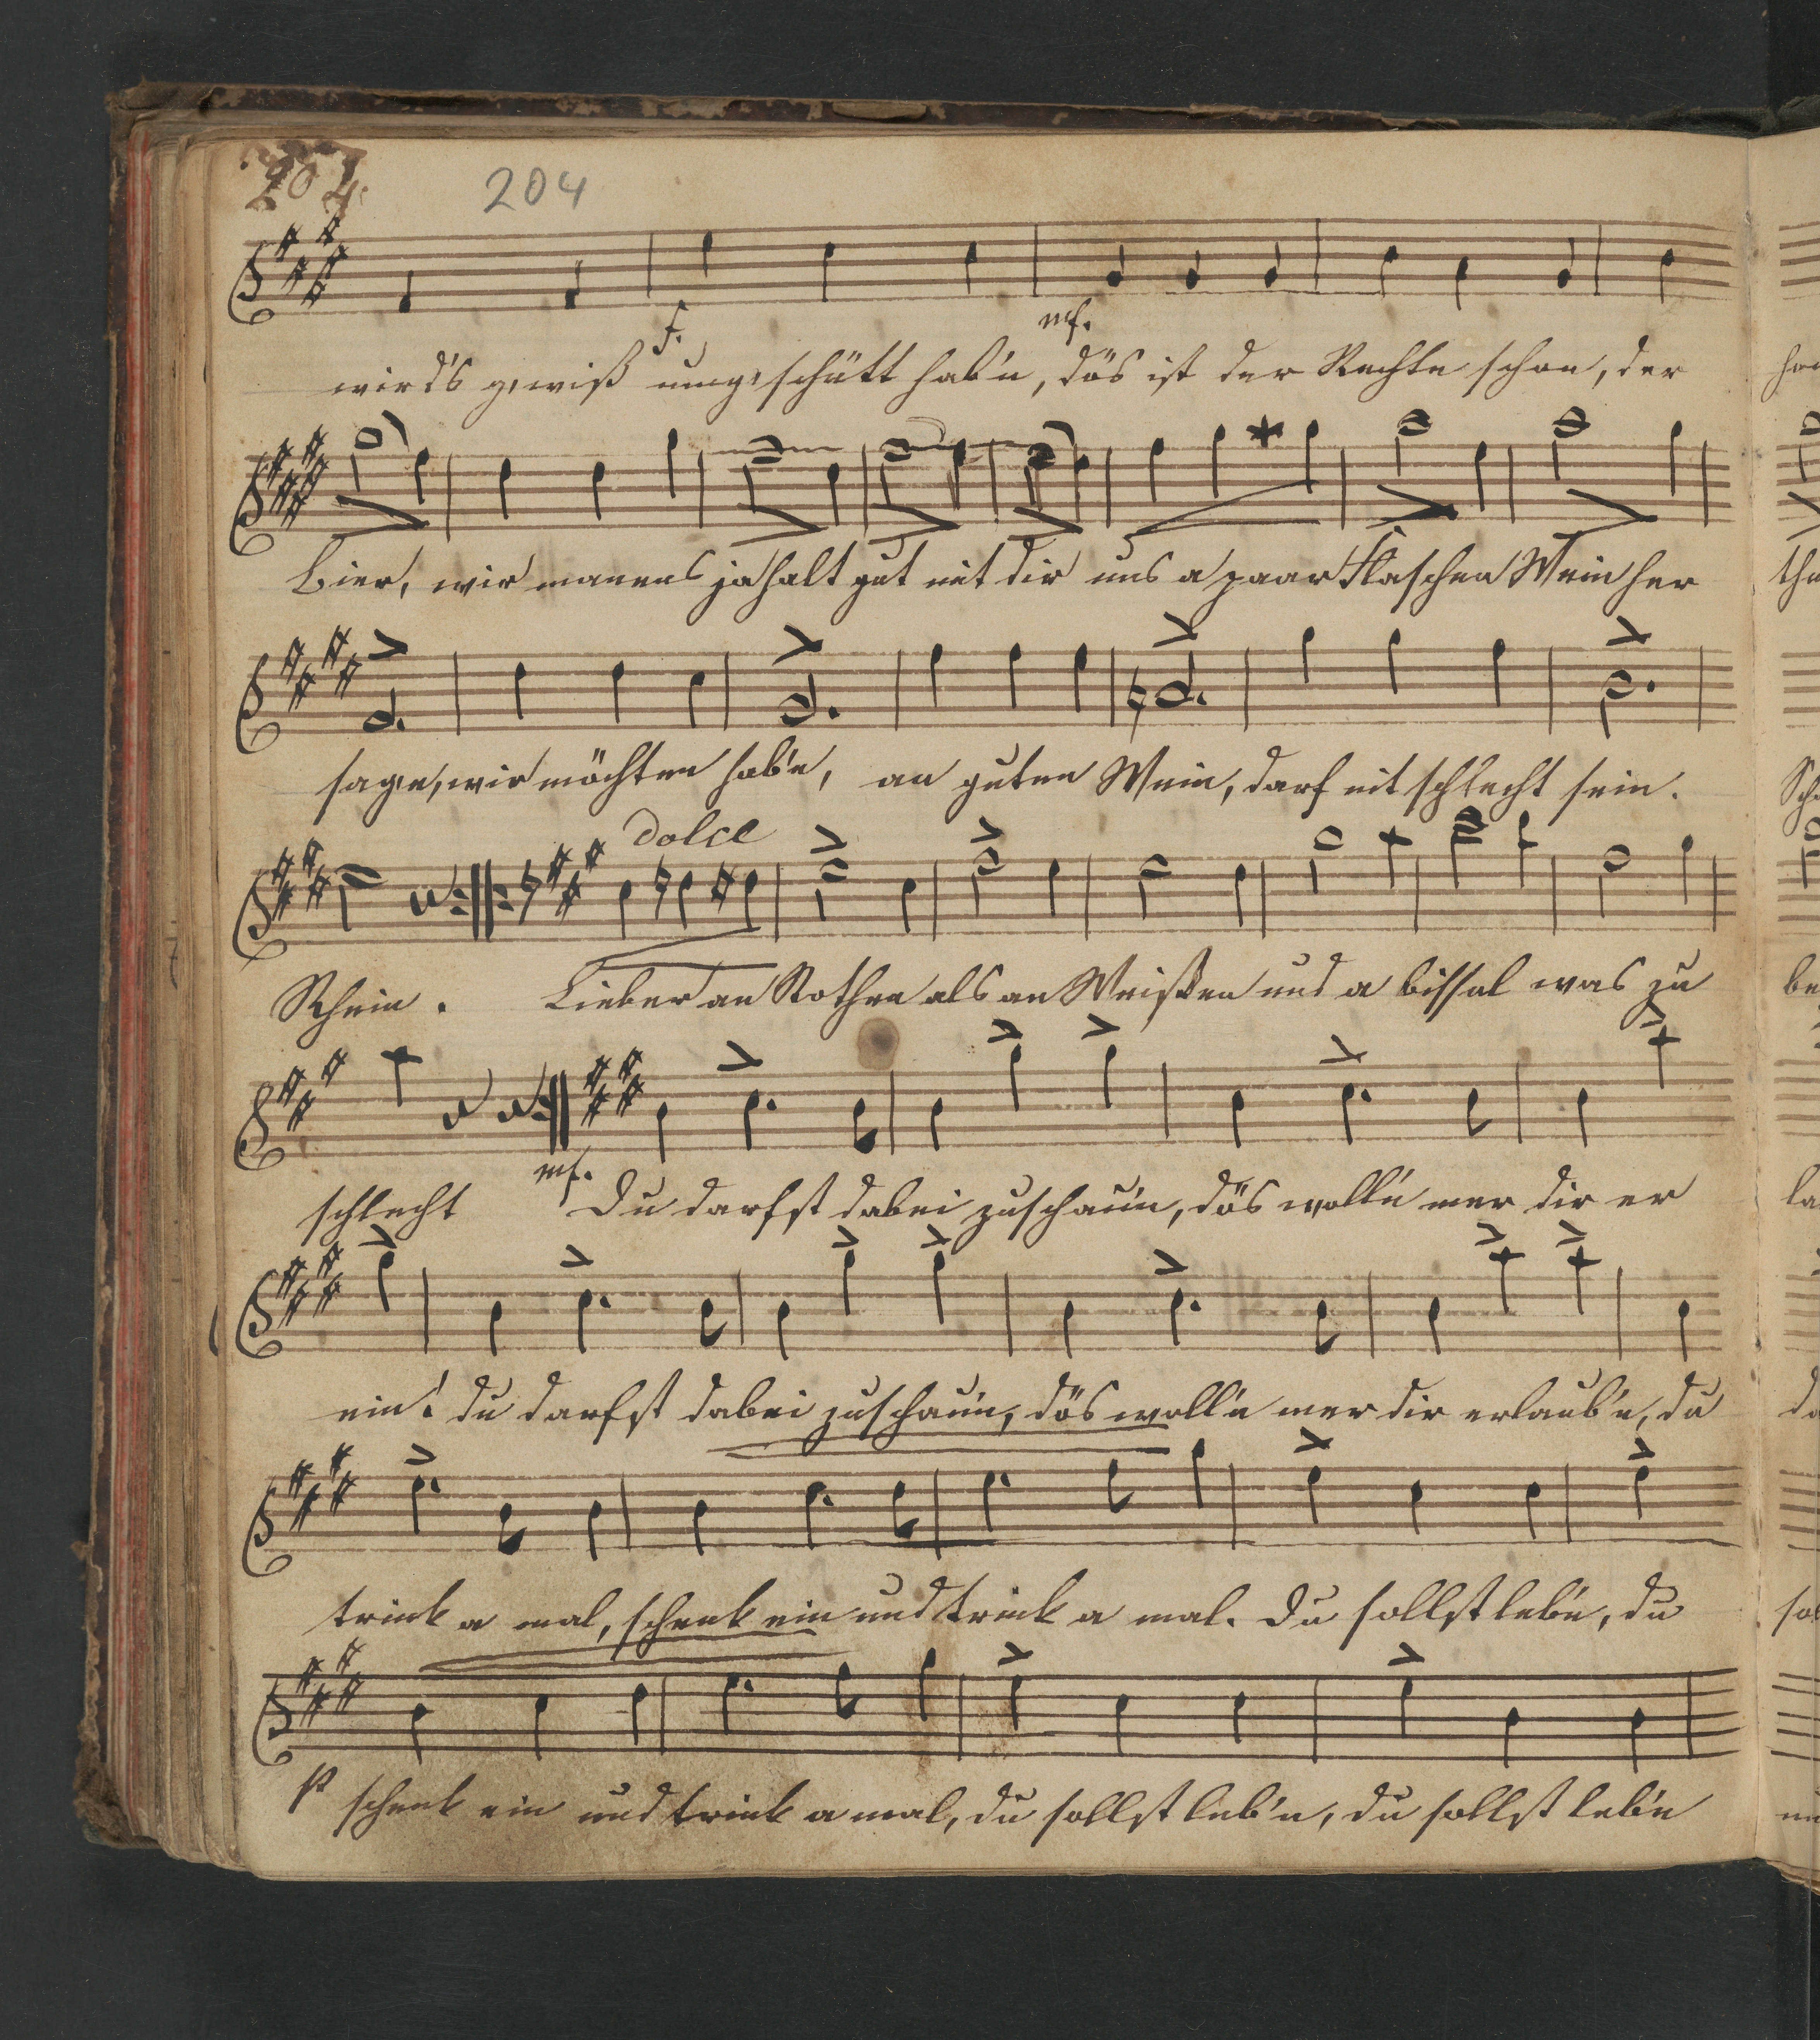 204.
204
f. mf.
wird's gewiß umgeschütt hab'n, dös ist der Rechte schon, der
Bier, wir manens ja halt gut mit dir uns a paar Flaschen Wein her
sagn, wir möchten hab'n, an guten Wein, darf nit schlecht sein.
dolce
Rhein. Lieber an Rothen als an Weißen und a bissal was zu
mf.
schlecht Du darfst dabei zuschau'n, dös woll'n mer dir er
ein! du darfst dabei zuschau'n, dös woll'n mer dir erlaub'n, du
trink a mal, schenk ein und trink a mal. Du sollst leb'n, du
p schenk ein und trink a mal, du sollst leb'n, du sollst leb'n